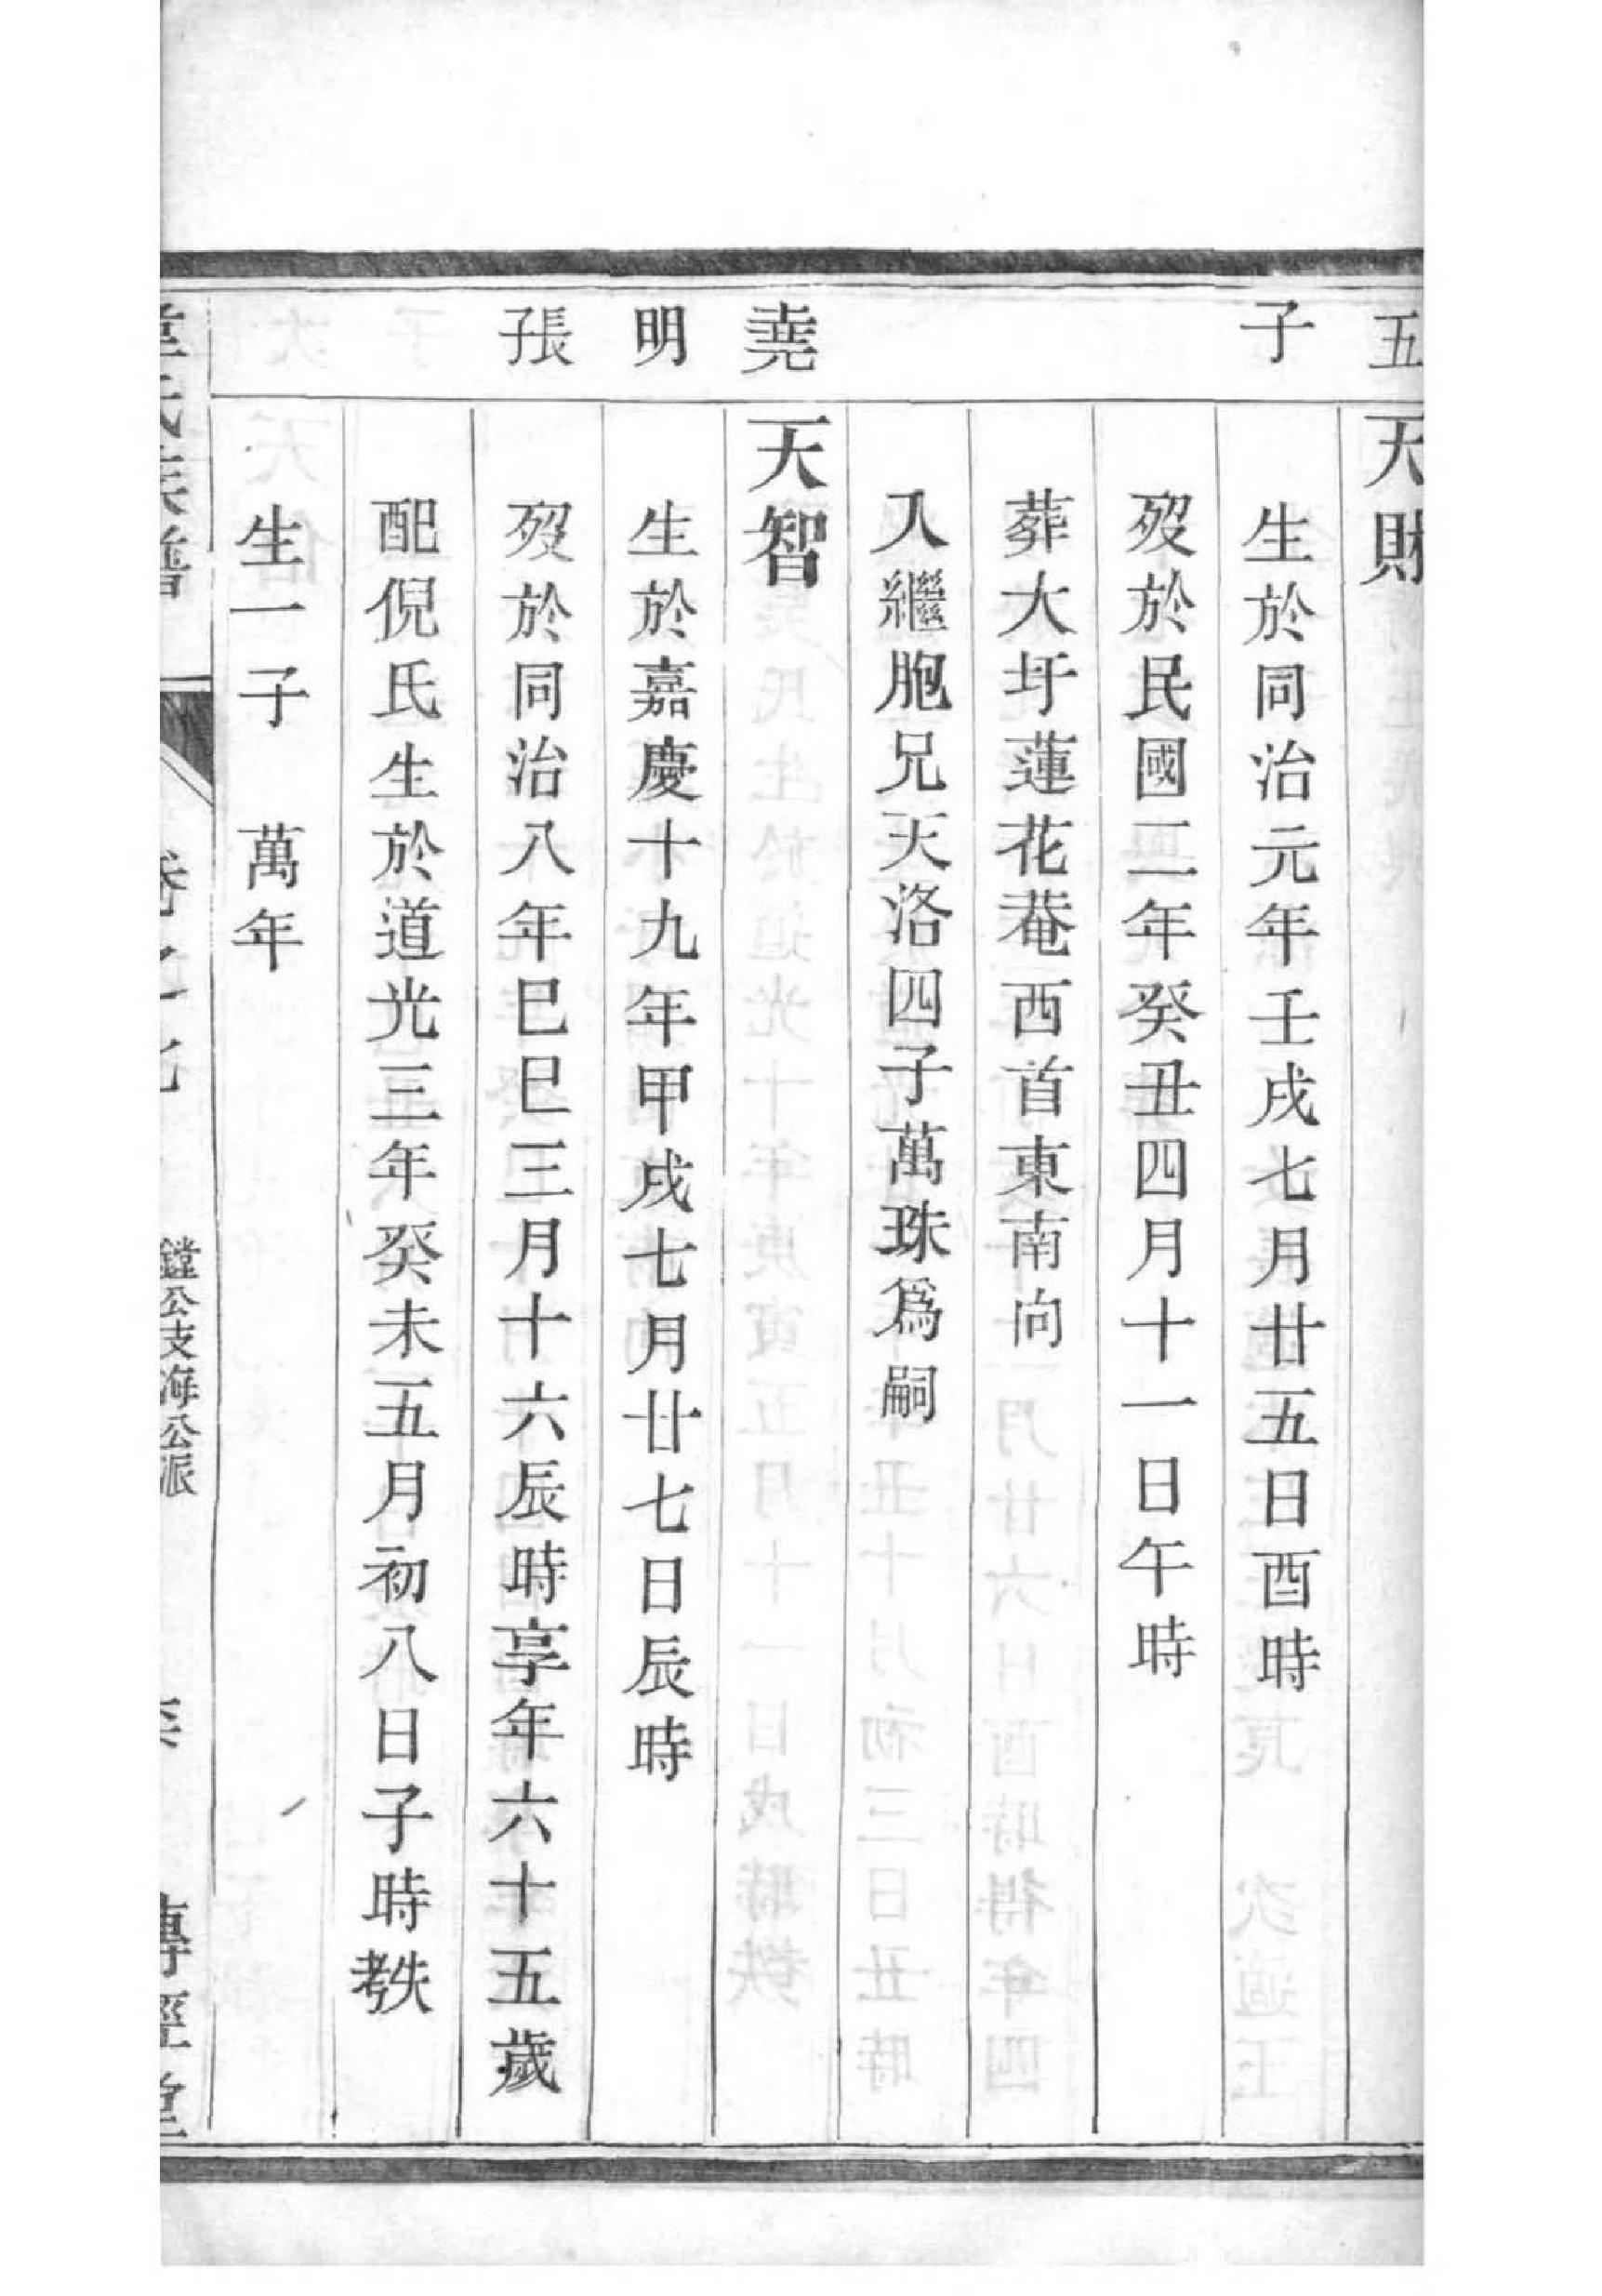 五
天財
子
生於同治元年壬戌七月廿五日酉時
歿於民國二年癸丑四月十一日午時
葬大圩蓮花菴西首東南向
入繼胞兄天洛四子萬珠爲嗣
堯
天智
明
生於嘉慶十九年甲戌七月廿七日辰時
張
子
歿於同治八年巳巳三月十六辰時享年六十五歲
配倪氏生於道光三年癸未五月初八日子時𦒿失
生一子 萬年
氏族譜
卷之七
鏜公支海公派
傳經堂